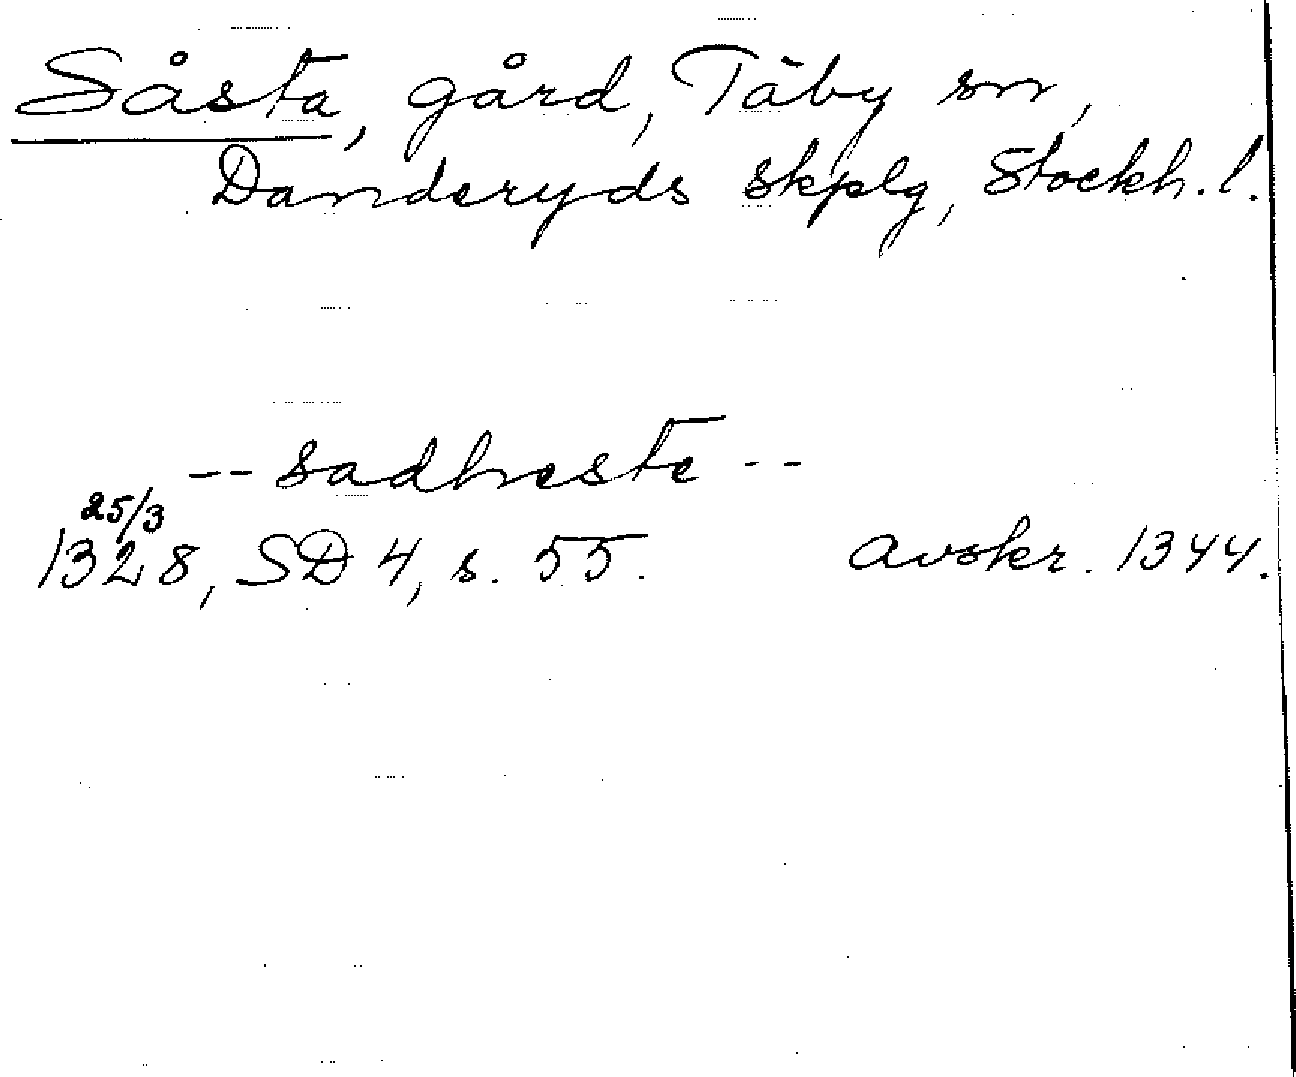 Såsta, gård, Täby sn,
Danderyds skplg, Stockh. l.
-- sadhreste --
25/3
1328, SD 4, s. 55. avskr. 1344.